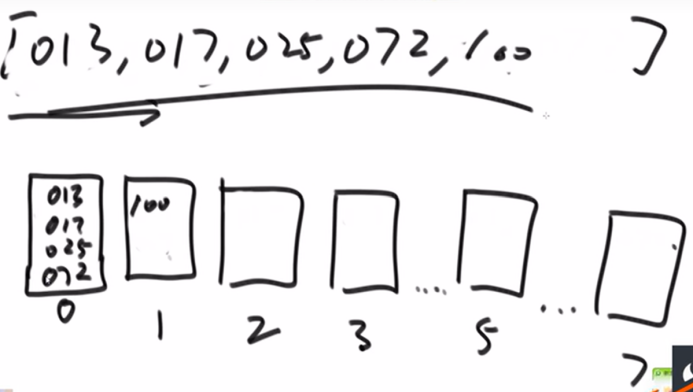 [013, 017, 025, 072, 100 ]
013
017
025
072
100
0 1 2 3 ..... 5 ... 7